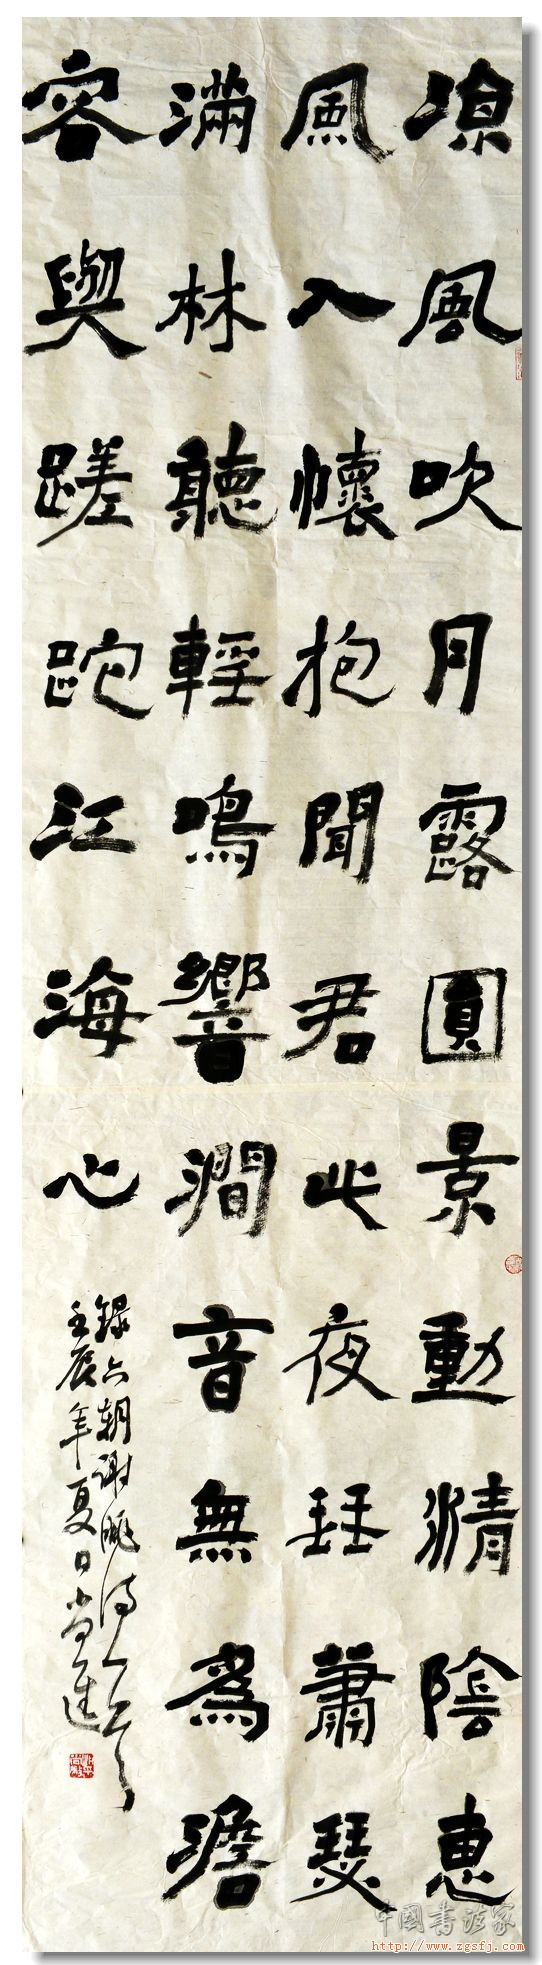 涼風吹月露圓景動清陰惠
風入懷抱聞君此夜琴蕭瑟
滿林聽輕鳴響澗音無為澹
容與蹉跎江海心
錄六朝謝朓詩一首
壬辰年夏日尚進
中國書法家
http://www.zgsfj.com